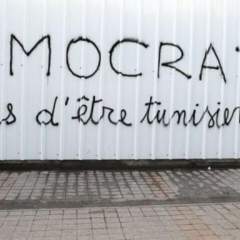 MOCRA
s d'être tunisie